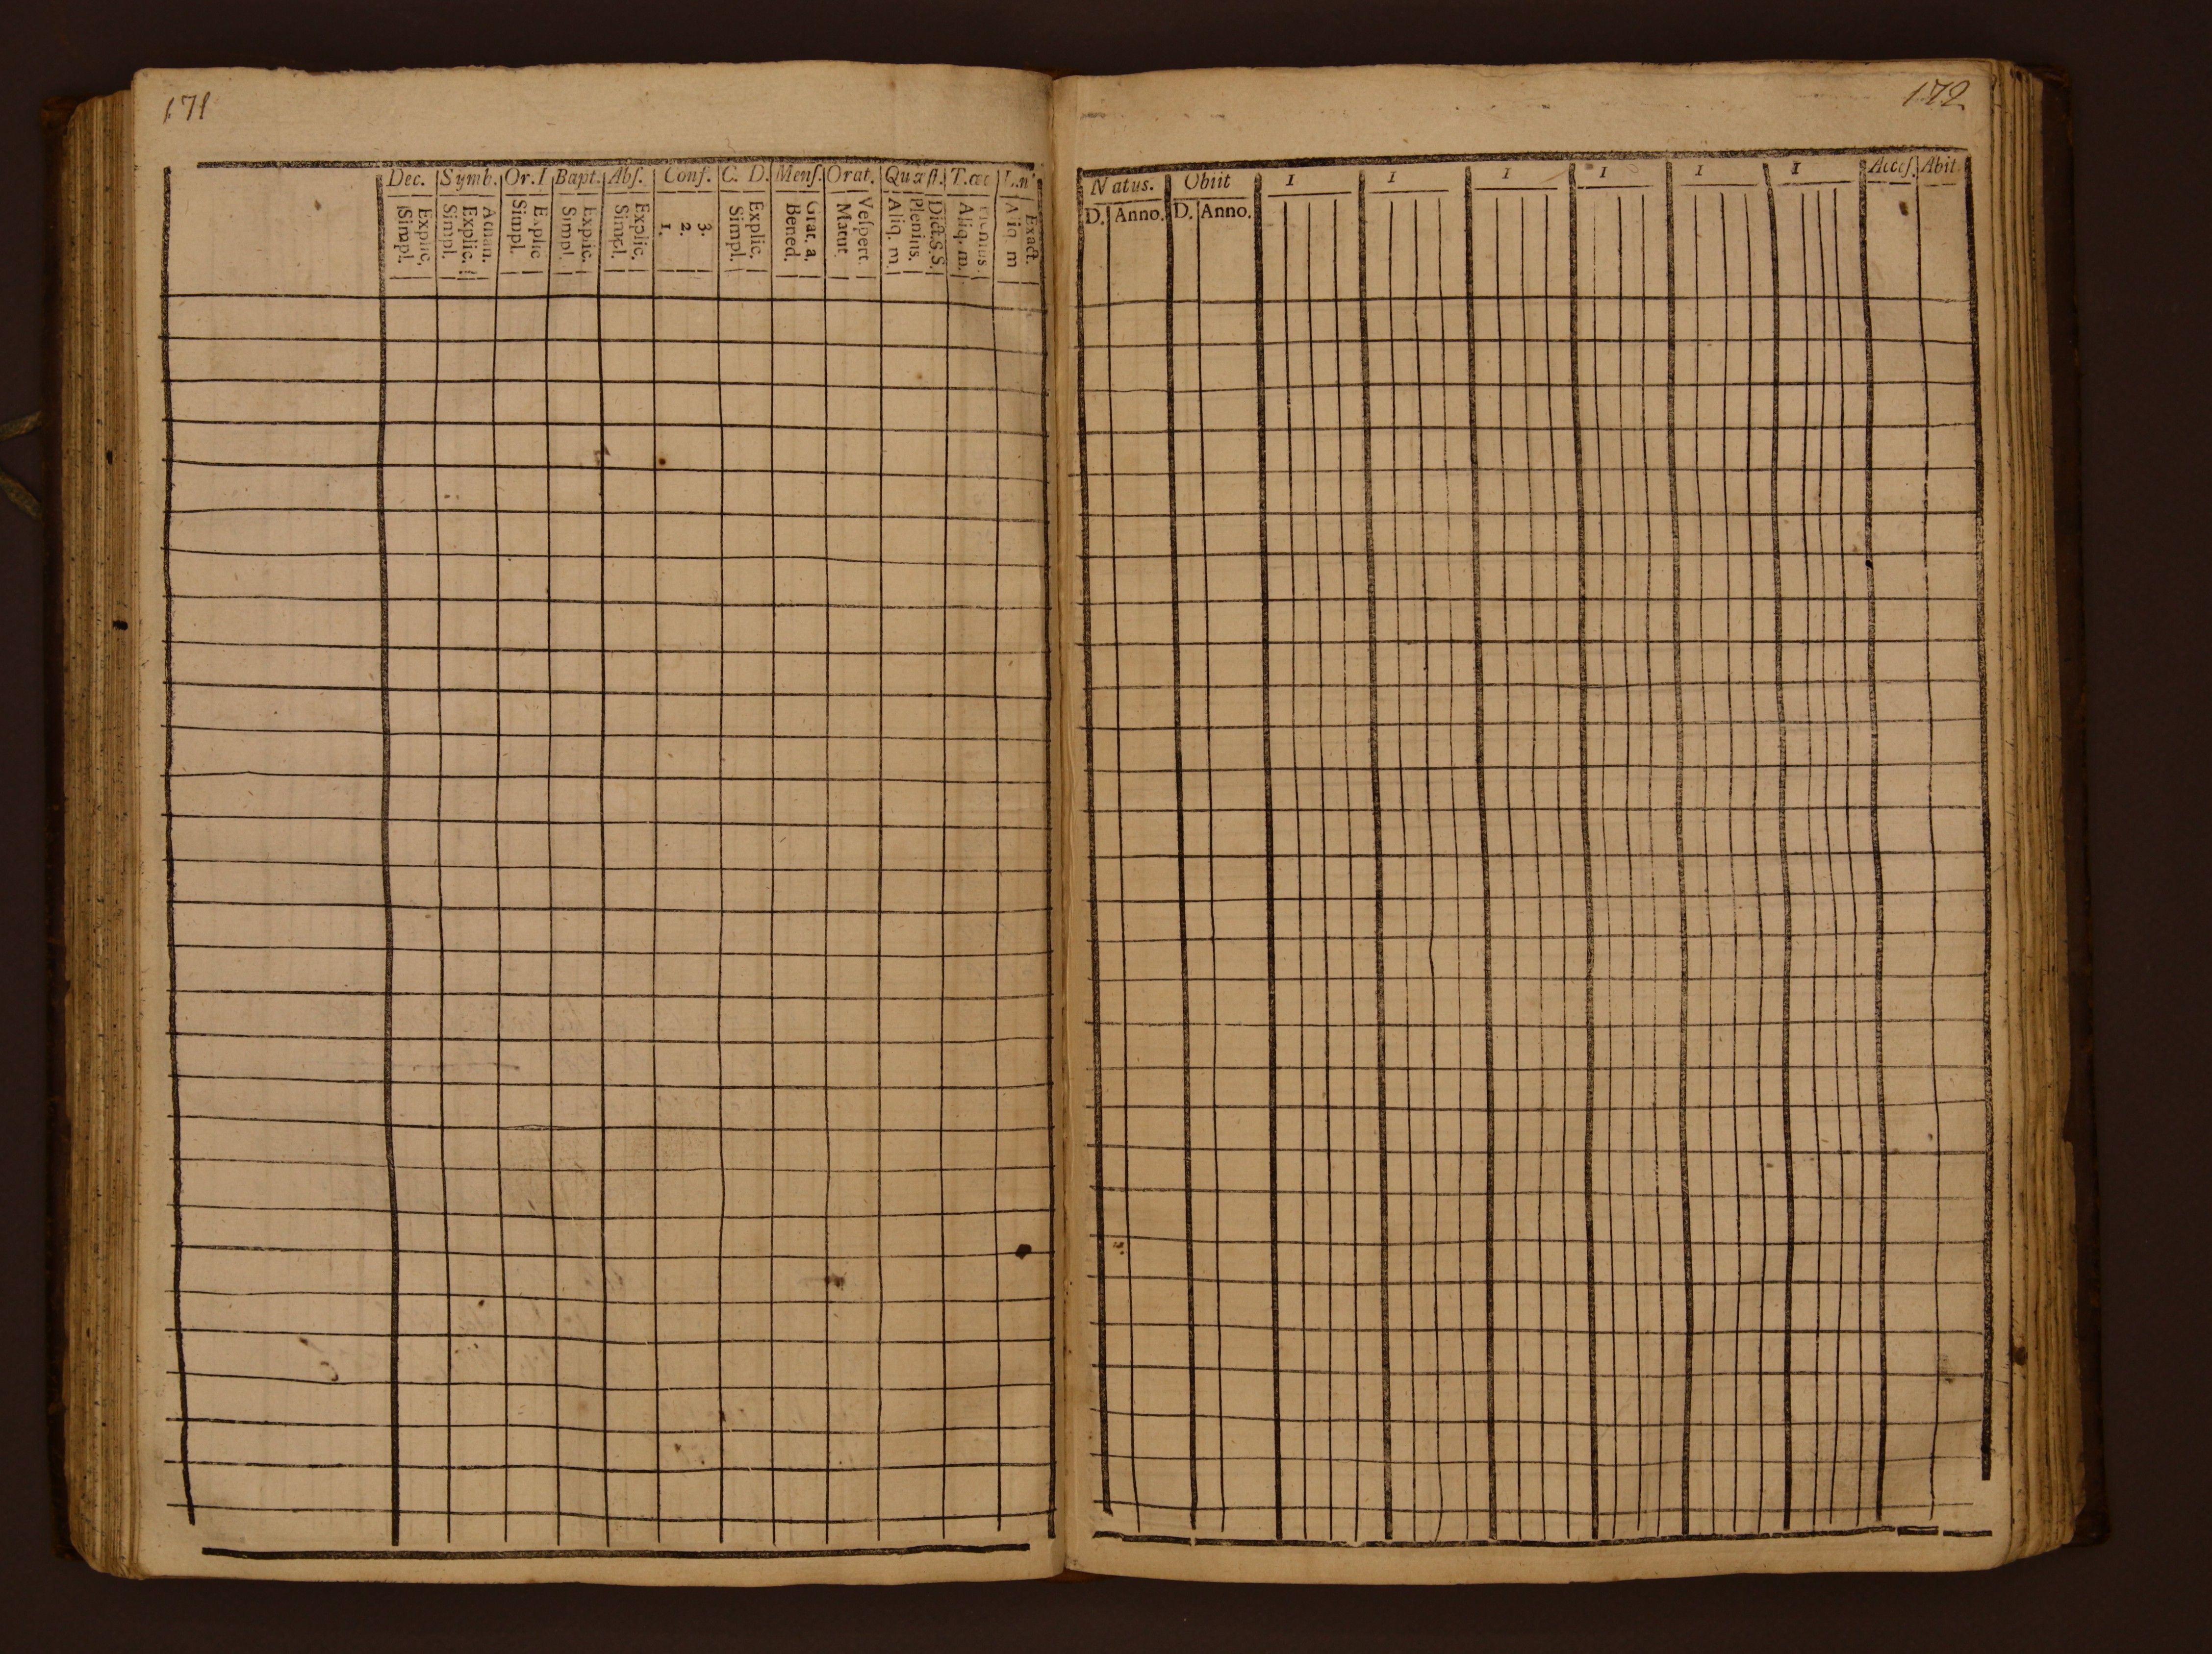 171
Dec. Symb. Or. I Bapt. Abſ. Conf. C. D. Menſ. Orat. Quæſt. T. œc
Explic. Simpl.
Athan. Explic. Simpl.
Explic Simpl.
Explic. Simpl.
Explic. Simpl.
3. 2. 1.
Explic. Simpl.
Grat. a. Bened.
Veſpert. Matut.
Dict. S. S. Plenius. Aliq. m.
Plenius. Aliq. m.
Exact. Aliq m
172
Natus. Obiit I I I I I I Acceſ. Abit.
D. Anno. D. Anno.